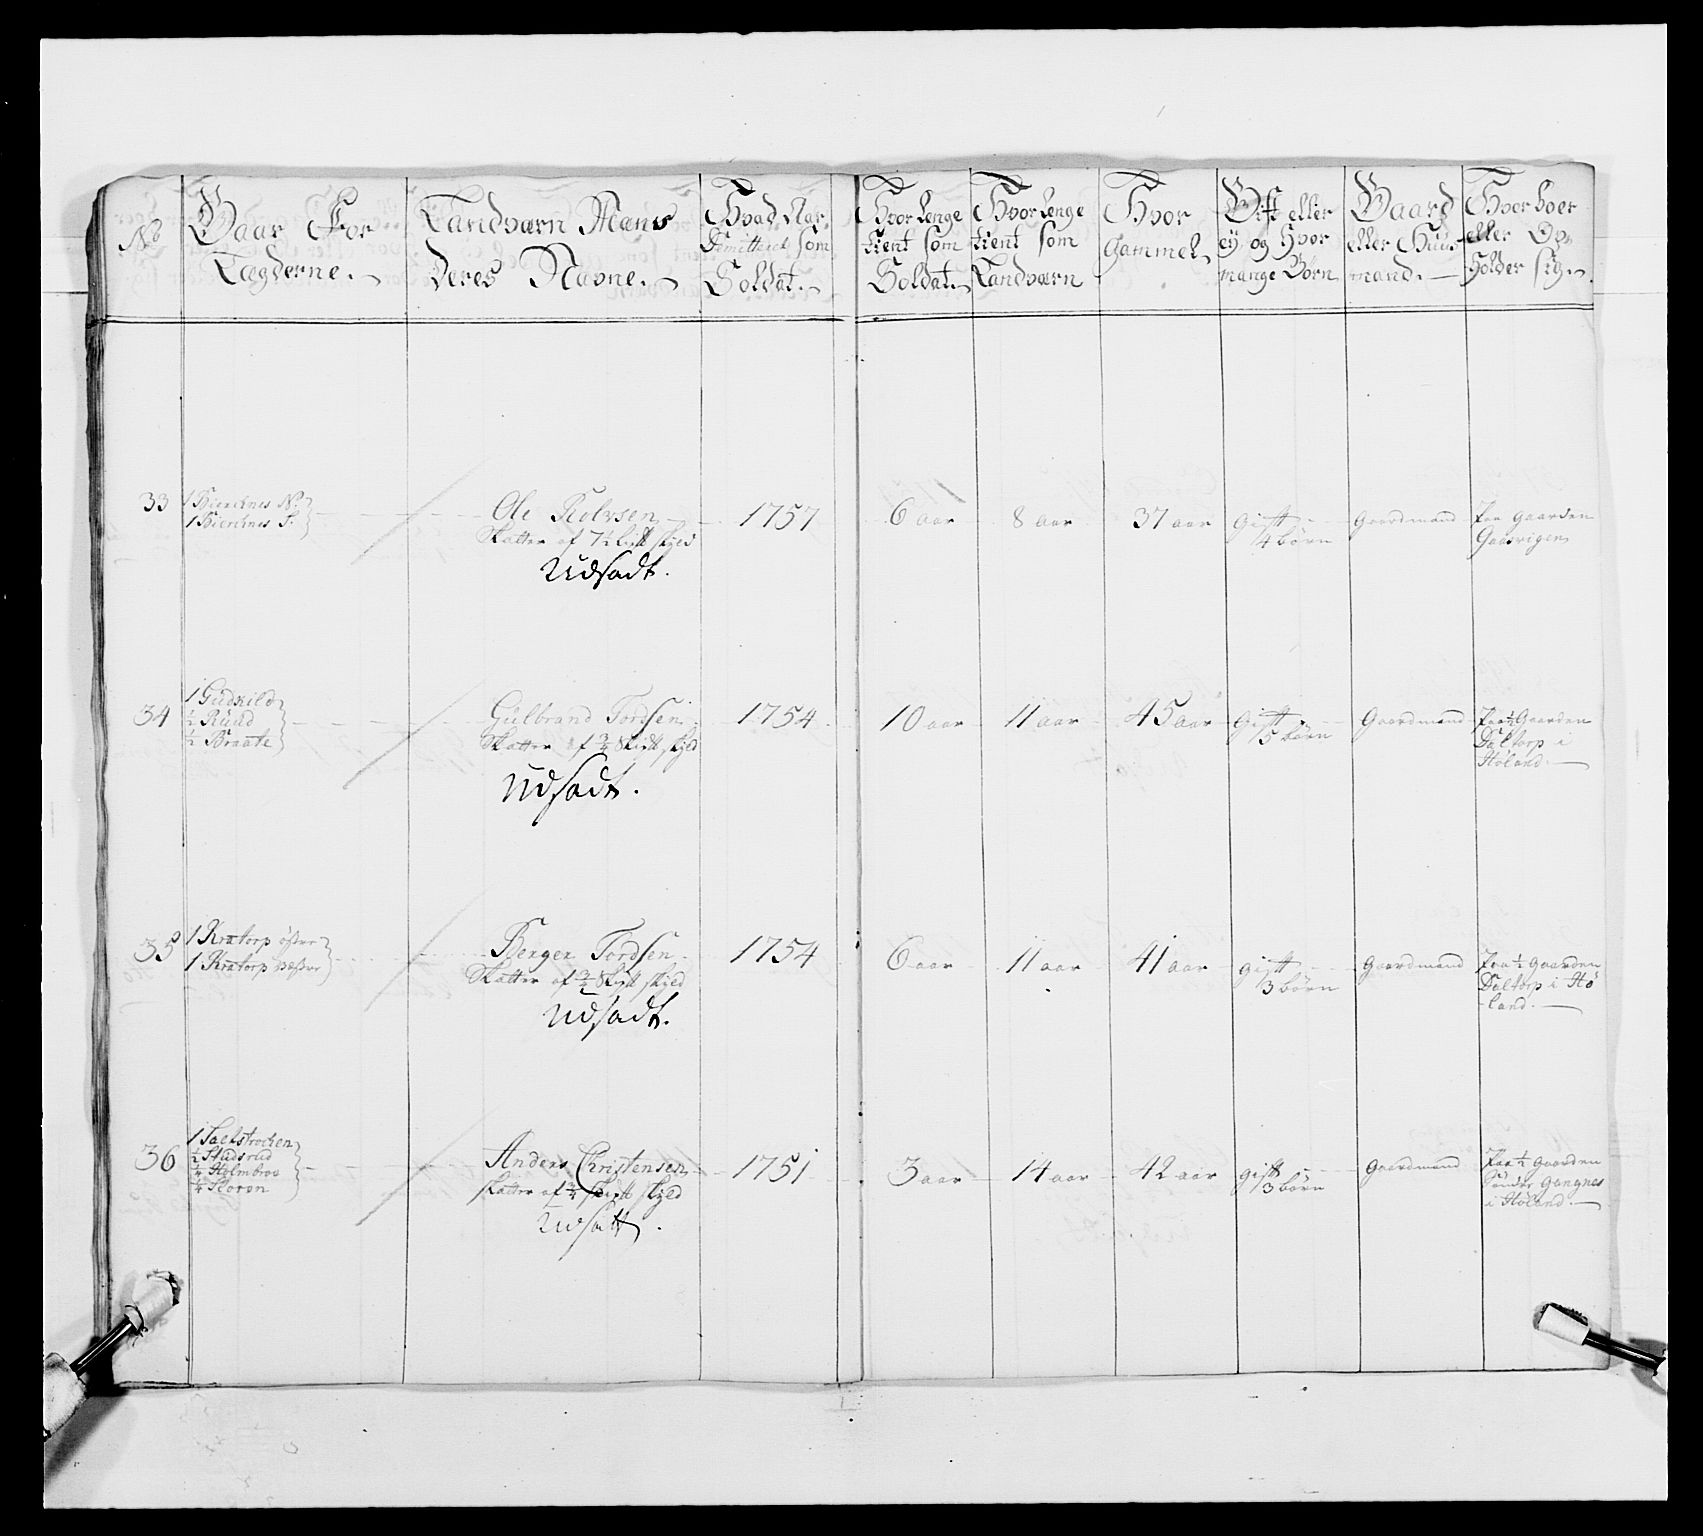 No
Gaar For
Lægderne.
Landværn Mans
Deres Navne.
Hvad Aar
Dimitteret som
Soldat.
Hvor længe
tient som
Soldat.
Hvor længe
tient som
Landværn
Hvor
gammel
Gift eller
ey, og Hvor
mange Børn
Gaard
eller Huus
mand.
Hvor boer
eller Op
holder sig.
33
1 Bierchnes N:
1 Bierchnes S:
Ole Rolvsen
Skatter af 7½ Lispd skyld
Udsadt.
1757
6 aar
8 aar
37 aar
gift
4 børn
gaardmand
Paa gaarden
34
1 Gudxild
½ Ruud
½ Braate
Gulbrand Tordsen
Skatter af skyld
Udsadt.
1754
10 aar
11 aar
45 aar
gift
5 børn
Gaardmand
Paa ½ Gaarden
Daltorp i
Høland
35
1 Kratorp øster
1 Kratorp væster
Berger Tordsen
Skatter af skyld
Udsadt.
1754
6 aar
11 aar
41 aar
gift
3 børn
gaardmand
Paa ½ gaarden
Daltorp i Hø
land.
36
½ Studsrud
¼ Holmbroe
¼ Floren
Anders Christensen
skatter af skyld
Udsatt.
1751
3 aar
14 aar
42 aar
gift
3 børn
gaardmand
Paa ½ gaarden
Sønder Gangnes
i Høland.